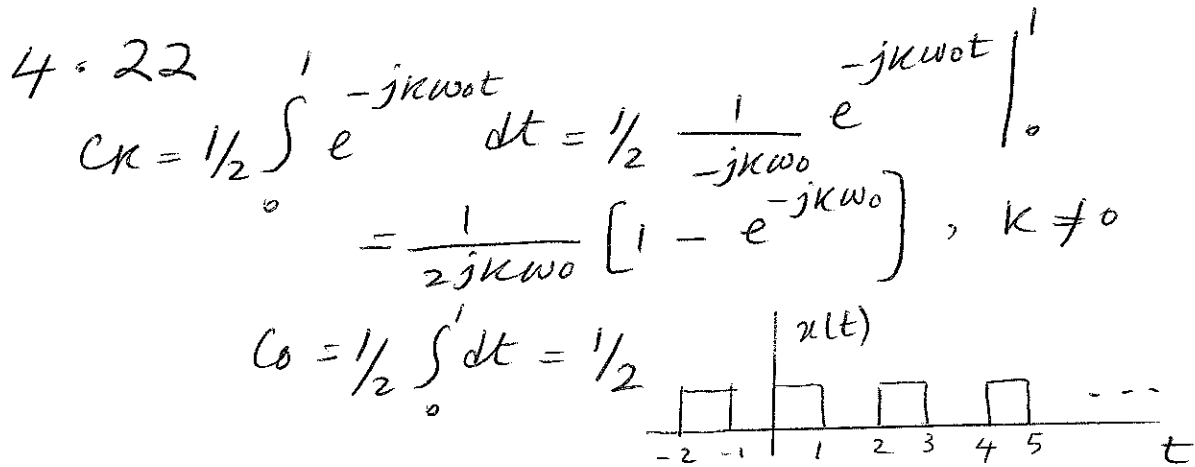 4.22
CK = 1/2 ∫₀¹ e^(-jKω₀t) dt = 1/2 1/(-jKω₀) e^(-jKω₀t) |₀¹
= 1/(2jKω₀) [1 - e^(-jKω₀)] , K ≠ 0
C₀ = 1/2 ∫₀¹ dt = 1/2
x(t)
- - -
-2 -1 1 2 3 4 5 t